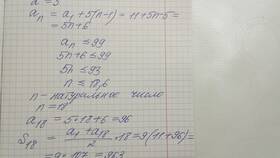 a = 5
aₙ = a₁ + 5(n-1) = 11 + 5n - 5 =
= 5n + 6
aₙ ≤ 99
5n + 6 ≤ 99
5n ≤ 93
n ≤ 18,6
n - натуральное число
n = 18
a₁₈ = 5·18 + 6 = 96
S₁₈ = (a₁ + a₁₈)/2 · 18 = 9(11 + 96) =
= 9·107 = 963